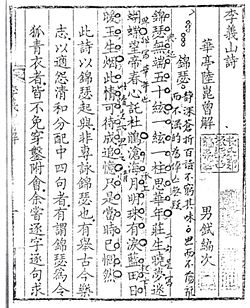 李義山詩
華亭陸崑曽解
男 編次
錦瑟
錦瑟無端五十絃一絃一柱思華年莊生曉夢迷
蝴蝶望帝春心託杜鵑滄海月明珠有淚藍田日
暖玉生烟此情可待成追憶只是當時已惘然
此詩以錦瑟起興非專詠錦瑟也有舉古今樂
志以適怨清和分配中四句者有謂錦瑟為令
狐青衣者皆不免穿鑿附會余嘗逐字逐句求